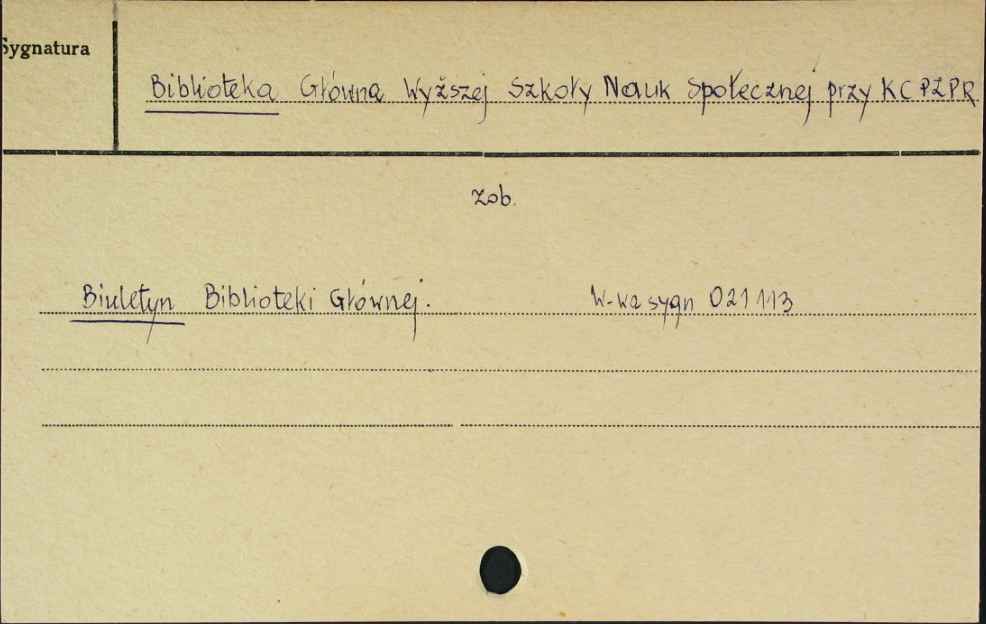 Sygnatura
Biblioteka Główna Wyższej Szkoły Nauk Społecznej przy KC PZPR
zob.
Biuletyn Biblioteki Głównej. W-wa sygn 021113